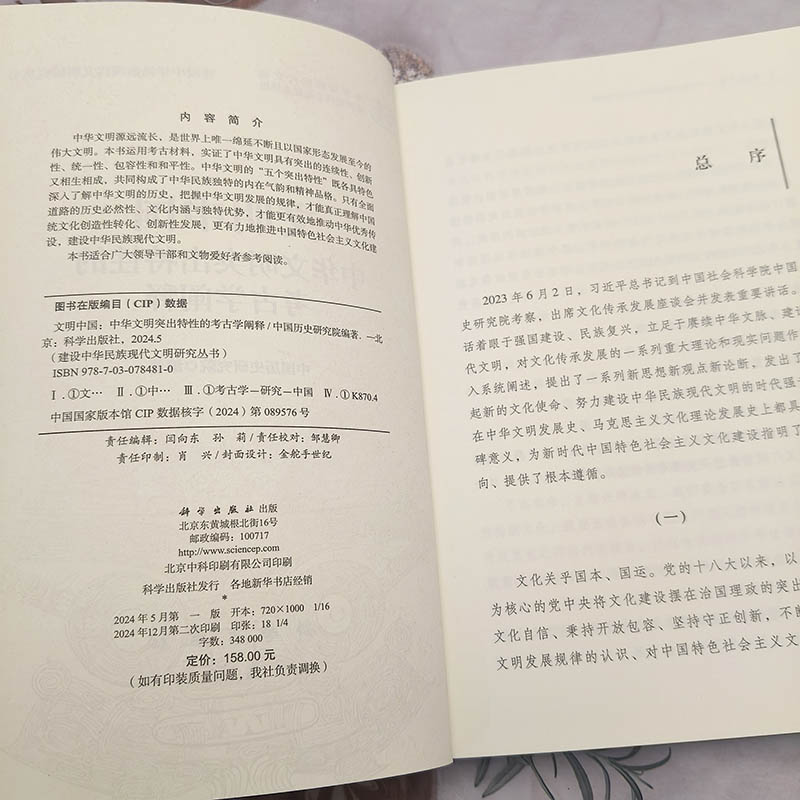 内容简介
中华文明源远流长，是世界上唯一绵延不断且以国家形态发展至今的
伟大文明。本书运用考古材料，实证了中华文明具有突出的连续性、创新
性、统一性、包容性和和平性。中华文明的“五个突出特性”既各具特色
又相生相成，共同构成了中华民族独特的内在气韵和精神品格。只有全面
深入了解中华文明的历史，把握中华文明发展的规律，才能真正理解中国
道路的历史必然性、文化内涵与独特优势，才能更有效地推动中华优秀传
统文化创造性转化、创新性发展，更有力地推进中国特色社会主义文化建
设，建设中华民族现代文明。
本书适合广大领导干部和文物爱好者参考阅读。
图书在版编目（CIP）数据
文明中国：中华文明突出特性的考古学阐释/中国历史研究院编著. —北
京：科学出版社，2024.5
（建设中华民族现代文明研究丛书）
ISBN 978-7-03-078481-0
Ⅰ.①文… Ⅱ.①中… Ⅲ.①考古学－研究－中国 Ⅳ.①K870.4
中国国家版本馆CIP数据核字（2024）第089576号
责任编辑：闫向东 孙 莉/责任校对：邹慧卿
责任印制：肖 兴/封面设计：金舵手世纪
科学出版社 出版
北京东黄城根北街16号
邮政编码：100717
http://www.sciencep.com
北京中科印刷有限公司印刷
科学出版社发行 各地新华书店经销
*
2024年5月第 一 版 开本：720×1000 1/16
2024年12月第二次印刷 印张：18 1/4
字数：348 000
定价：158.00元
（如有印装质量问题，我社负责调换）
总序
2023年6月2日，习近平总书记到中国社会科学院中国
史研究院考察，出席文化传承发展座谈会并发表重要讲话。
话着眼于强国建设、民族复兴，立足于赓续中华文脉、建设
代文明，对文化传承发展的一系列重大理论和现实问题作
入系统阐述，提出了一系列新思想新观点新论断，发出了
起新的文化使命、努力建设中华民族现代文明的时代强
在中华文明发展史、马克思主义文化理论发展史上都具
碑意义，为新时代中国特色社会主义文化建设指明了
向、提供了根本遵循。
（一）
文化关乎国本、国运。党的十八大以来，以
为核心的党中央将文化建设摆在治国理政的突出
文化自信、秉持开放包容、坚持守正创新，不断
文明发展规律的认识、对中国特色社会主义文